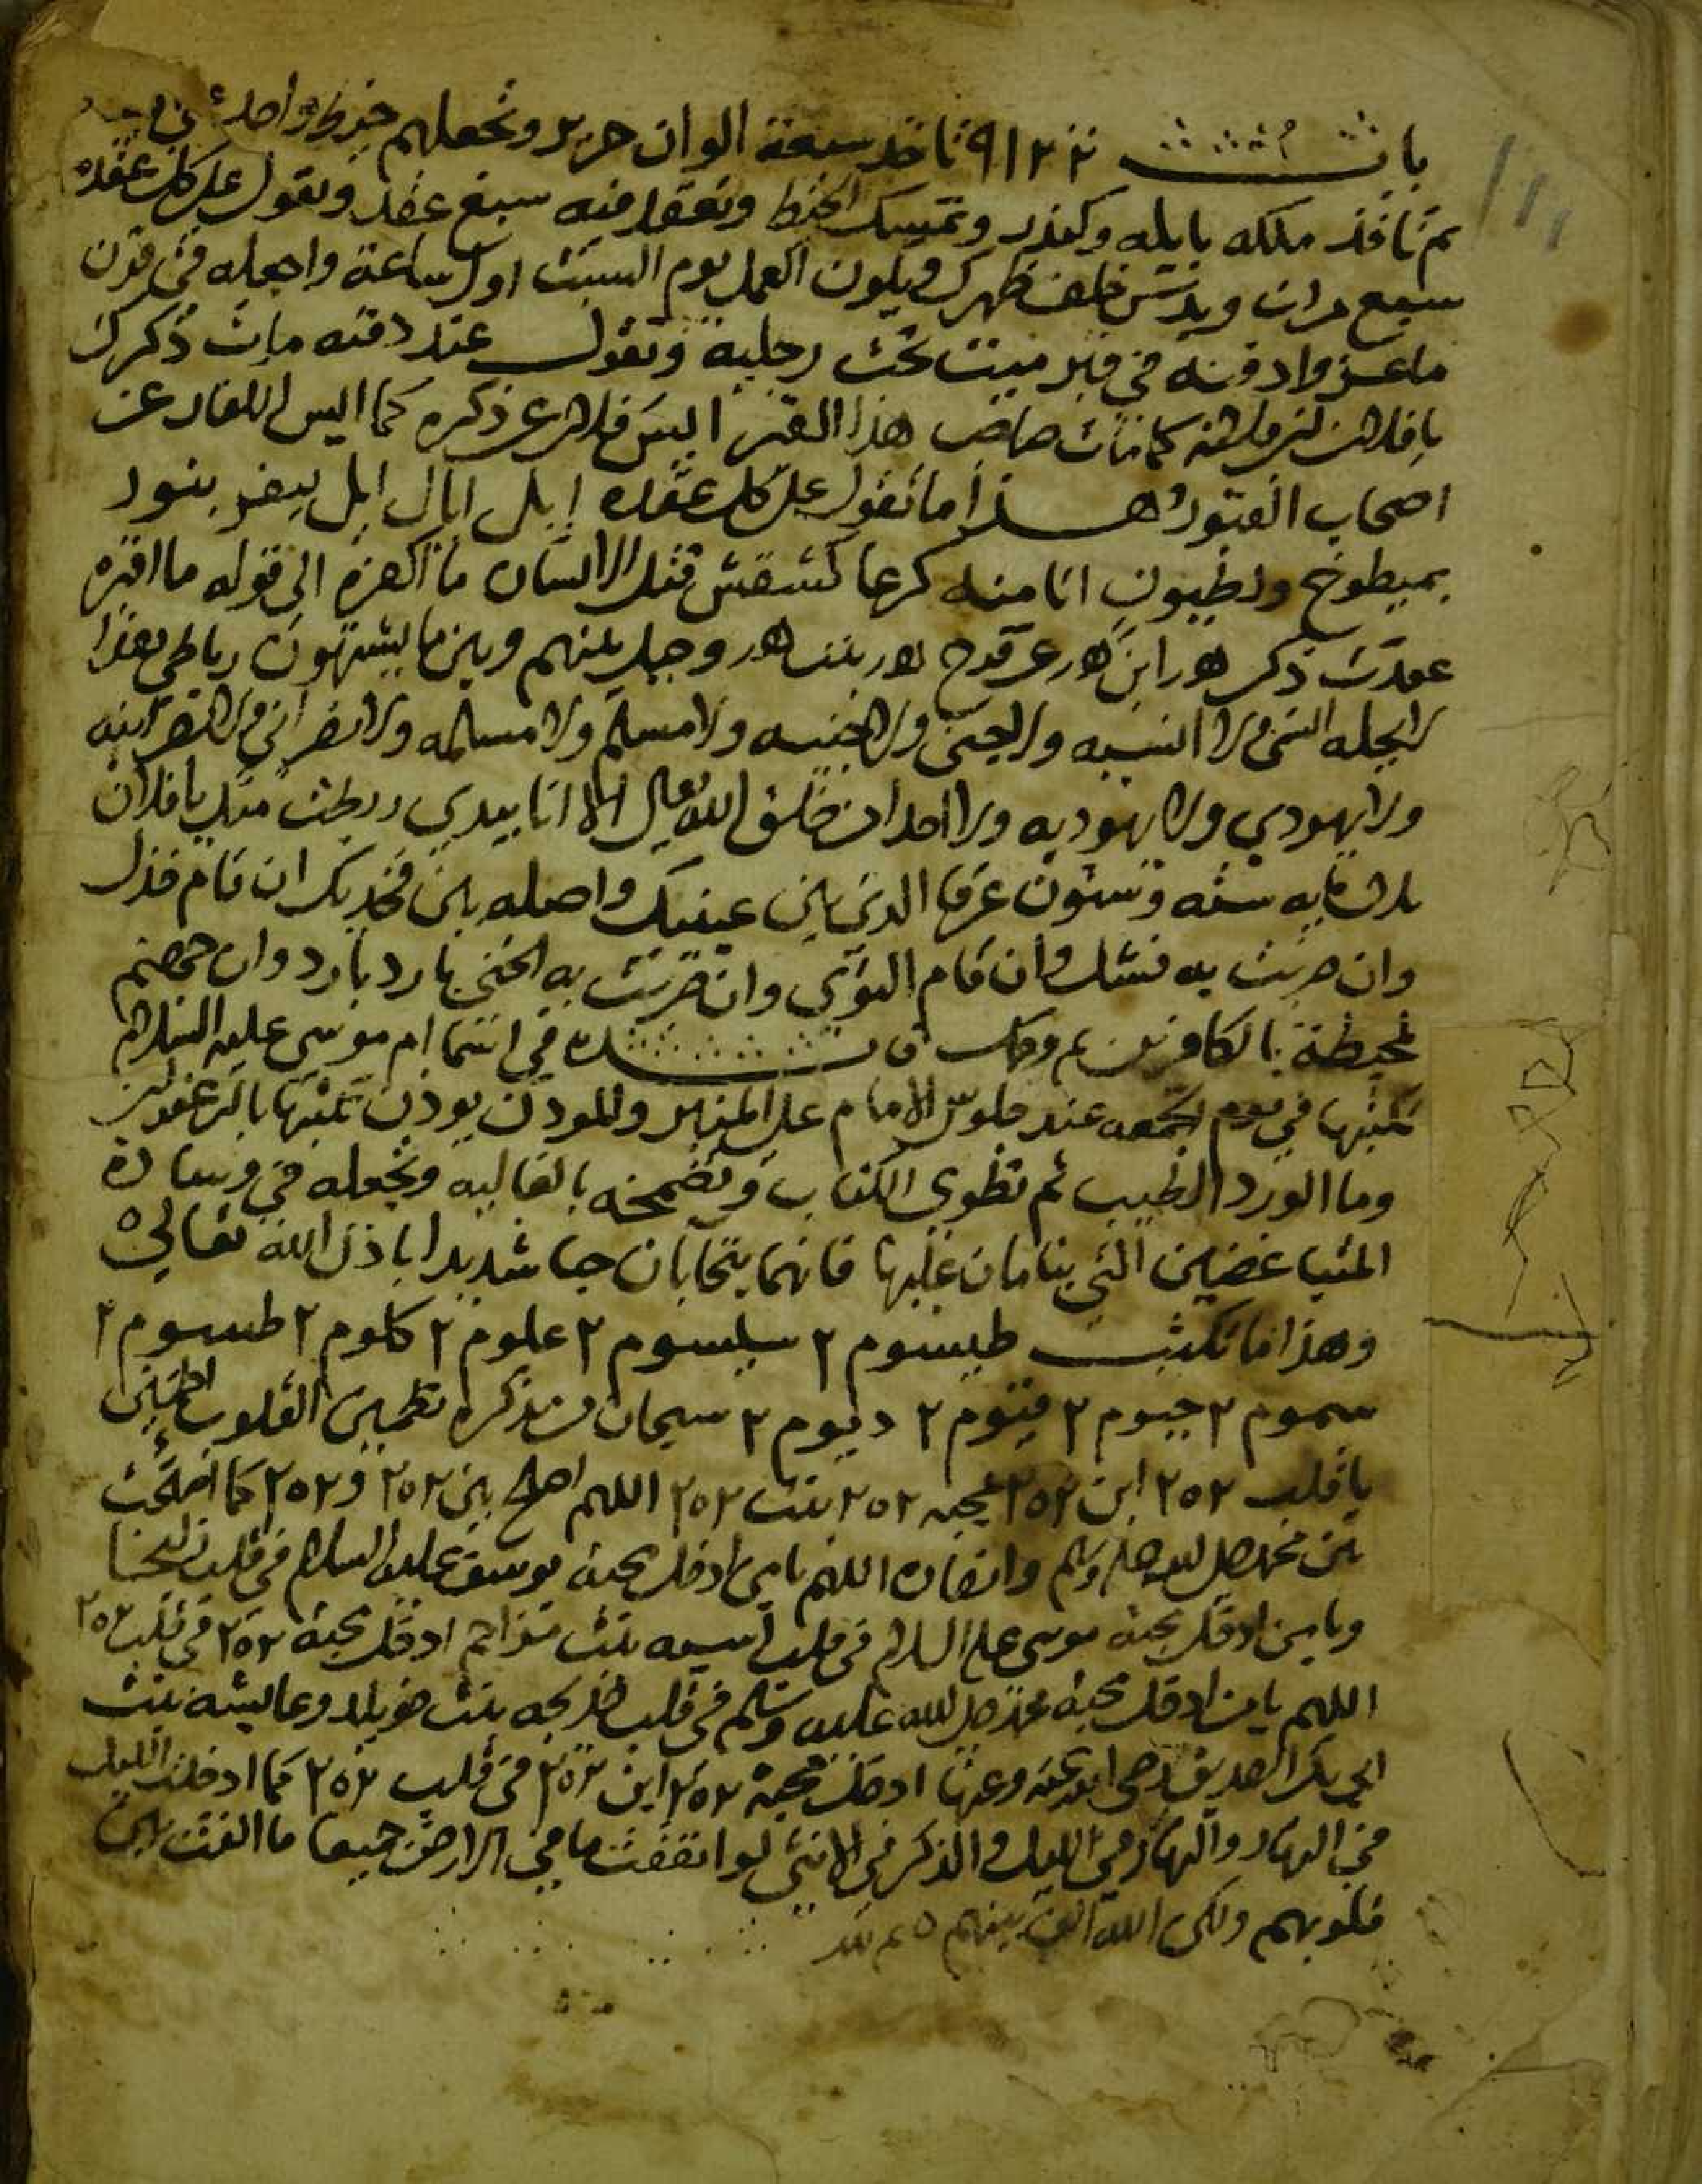 باب ٩١٢٢ تاخد سبعة الوان حرير وتجعلهم خيط واحد
ثم تاخذ وتمسك الخيط وتعقد فيه سبع عقد وتقول على كل عقده
سبع مرات خلف ظهرك ويكون العمل يوم السبت اول ساعة واجعله في قرن
ماعز وادفنه في قبر ميت تحت رجليه وتقول عند دفنه مات ذكرك
يا فلان ابن فلانه كما مات صاحب هذا القبر ايس فلان عن ذكره كما ايس الكفار عن
اصحاب القبور وهذا ما تقول على كل عقده
قتل الانسان ما اكفره الى قوله ما اقبره
عقدت ذكر وحيل بينهم وبين ما يشتهون رباطي هذا
لا يحله انسي ولا انسيه ولا جني ولا جنيه ولا مسلم ولا مسلمه ولا نصراني ولا نصرانيه
ولا يهودي ولا يهوديه ولا احدا من خلق الله تعالى الا انا بيدي ربطت منك يا فلان
ثلاثمايه سته وستون عرقا الذي بين عينيك واصله بين فخديك ان قام خذل
وان ضربت به فشل وان قام التوي وان ضربت به انحنى بارد بارد وان جهنم
لمحيطة بالكافرين تم وكمل فايده في اسما ام موسى عليه السلام
تكتبها في يوم الجمعه عند جلوس الامام على المنبر والمودن يودن تكتبها بالزعفران
وما الورد الطيب ثم تطوي الكتاب وتضمخه بالغاليه وتجعله في وسادة
المتباغضين التي ينامان عليها فانهما يتحابان حبا شديدا باذن الله تعالى
وهذا ما تكتب طيسوم ٢ سيلسوم ٢ علوم ٢ كلوم ٢ طيسوم ٢
سموم ٢ حيوم ٢ قيوم ٢ ديوم ٢ سبحان من بذكره تطمين القلوب اطمين
يا قلب ٢٥٢ ابن ٢٥٢ بمحبه ٢٥٢ بنت ٢٥٢ اللهم اصلح بين ٢٥٢ و ٢٥٢ كما اصلحت
بين محمد صلى الله عليه وسلم وانصاره اللهم يا من ادخل محبة يوسف عليه السلام في قلب زليخا
ويا من ادخل محبة موسى عليه السلام في قلب اسيه بنت مزاحم ادخل محبة ٢٥٢ في قلب ٢٥٢
اللهم يا من ادخل محبة محمد صلى الله عليه وسلم في قلب خديجه بنت خويلد وعايشه بنت
ابي بكر الصديق رضي الله عنه وعنها ادخل محبة ٢٥٢ ابن ٢٥٢ في قلب ٢٥٢ كما ادخلت الليل
في النهار والنهار في الليل والذكر في الانثى لو انفقت ما في الارض جميعا ما الفت بين
قلوبهم ولكن الله الف بينهم